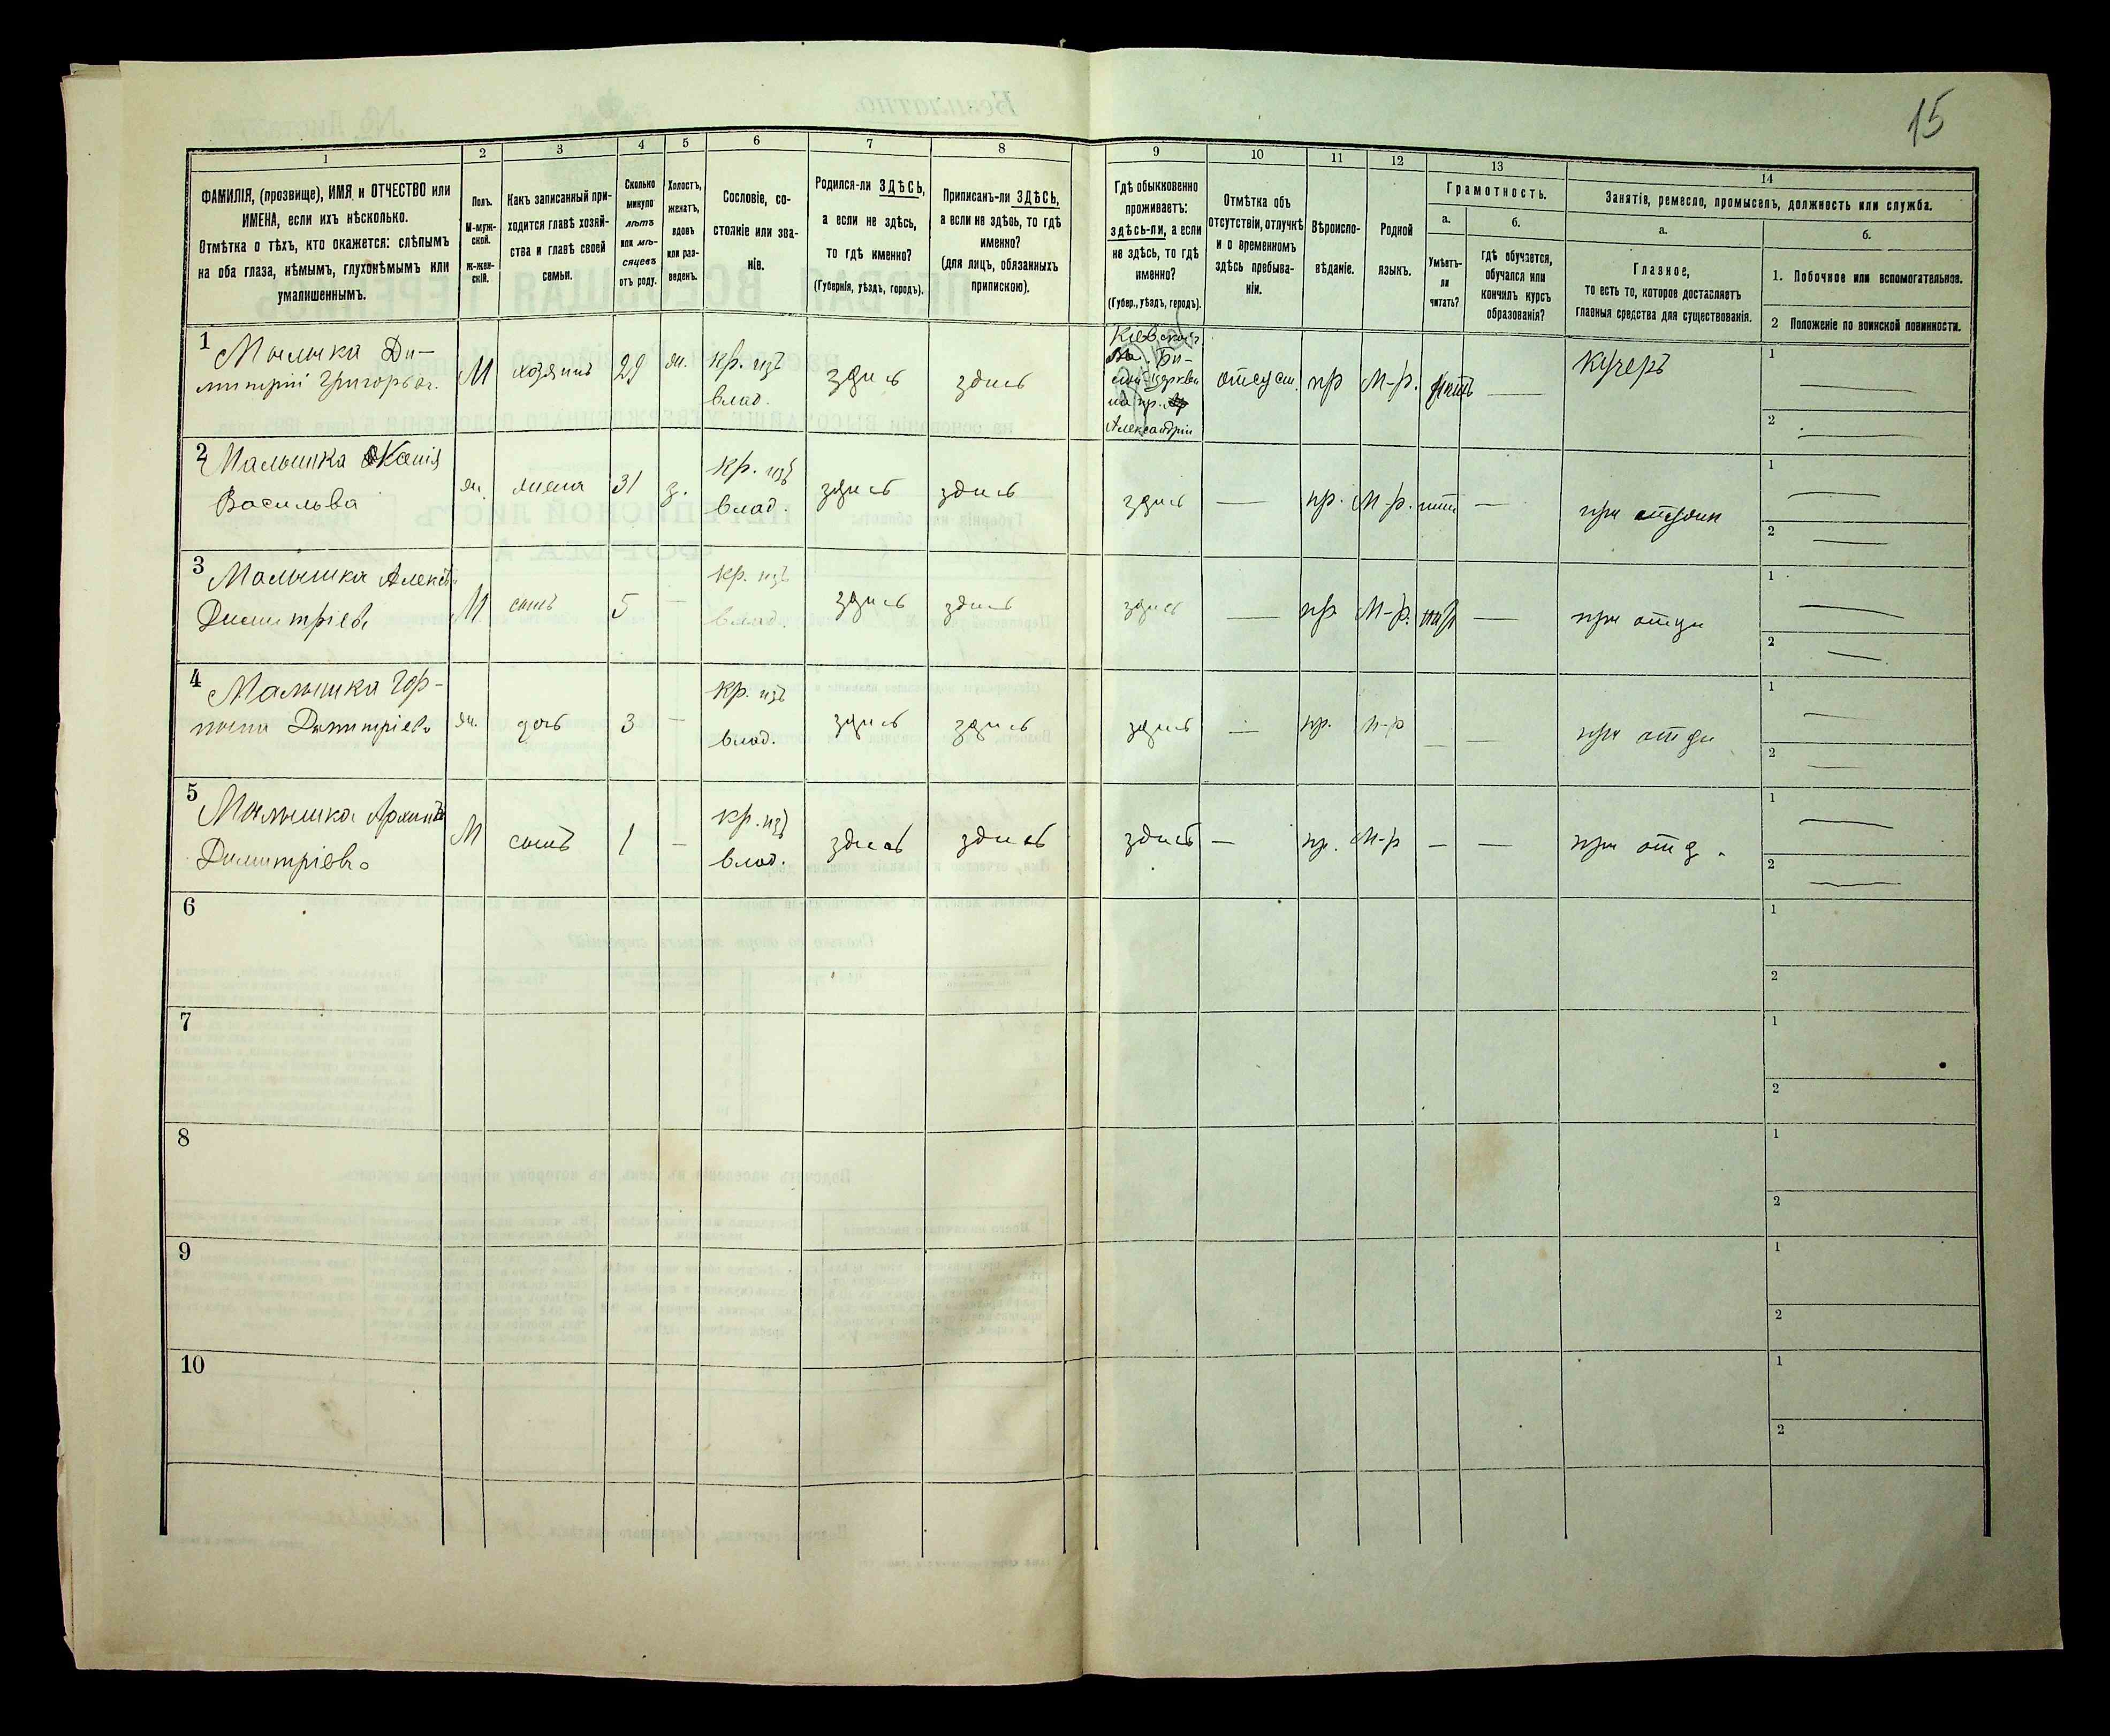 15
1
2
3
4
5
6
7
8
9
10
11
12
13
14
ФАМИЛІЯ, (прозвище), ИМЯ и ОТЧЕСТВО или
ИМЕНА, если ихъ нѣсколько.
Отмѣтка о тѣхъ, кто окажется: слѣпымъ
на оба глаза, нѣмымъ, глухонѣмымъ или
умалишеннымъ.
Полъ.
М-муж-
ской.
Ж-жен-
скій.
Какъ записанный при-
ходится главѣ хозяй-
ства и главѣ своей
семьи.
Сколько
минуло
лѣтъ
или мѣ-
сяцевъ
отъ роду.
Холостъ,
женатъ,
вдовъ
или раз-
веденъ.
Сословіе, со-
стояніе или зва-
ніе.
Родился-ли ЗДѢСЬ,
а если не здѣсь,
то гдѣ именно?
(Губернія, уѣздъ, городъ).
Приписанъ-ли ЗДѢСЬ,
а если не здѣсь, то гдѣ
именно?
(для лицъ, обязанныхъ
припискою).
Гдѣ обыкновенно
проживаетъ:
здѣсь-ли, а если
не здѣсь, то гдѣ
именно?
(Губер., уѣздъ, городъ).
Отмѣтка объ
отсутствіи, отлучкѣ
и о временномъ
здѣсь пребыва-
ніи.
Вѣроиспо-
вѣданіе.
Родной
языкъ.
Грамотность.
а.
Умѣетъ-
ли
читать?
б.
гдѣ обучается,
обучался или
кончилъ курсъ
образованія?
Занятія, ремесло, промыселъ, должность или служба.
а.
Главное,
то есть то, которое доставляетъ
главныя средства для существованія.
б.
1. Побочное или вспомогательное.
2 Положеніе по воинской повинности.
1
Малышка Ди-
митрій Григорьев.
М
хозяинъ
29
ж.
кр. изъ
влад.
здись
здись
Кіевской г.
Би-
лой Церкви
Александріи
отсут.
пр
М-р.
нитъ
—
кучеръ
1 —
2 —
2
Малышка
Васильва
ж.
жена
31
з.
кр. изъ
влад.
здись
здись
здись
—
пр.
М-р.
нит
—
при
1 —
2 —
3
Малышка Алексѣй
Димитріевъ
М
сынъ
5
—
кр. изъ
влад.
здись
здись
здись
—
пр
М-р.
—
при отци
1 —
2 —
4
Малышка Гор-
пына Димитріева
ж.
дочь
3
—
кр. изъ
влад.
здись
здись
здись
—
пр.
М-р
—
—
при отци
1 —
2 —
5
Малышка
Димитріевъ
М
сынъ
1
—
кр. изъ
влад.
здись
здись
здись
—
пр.
М-р
—
—
при отц.
1 —
2 —
6
1
2
7
1
2
8
1
2
9
1
2
10
1
2